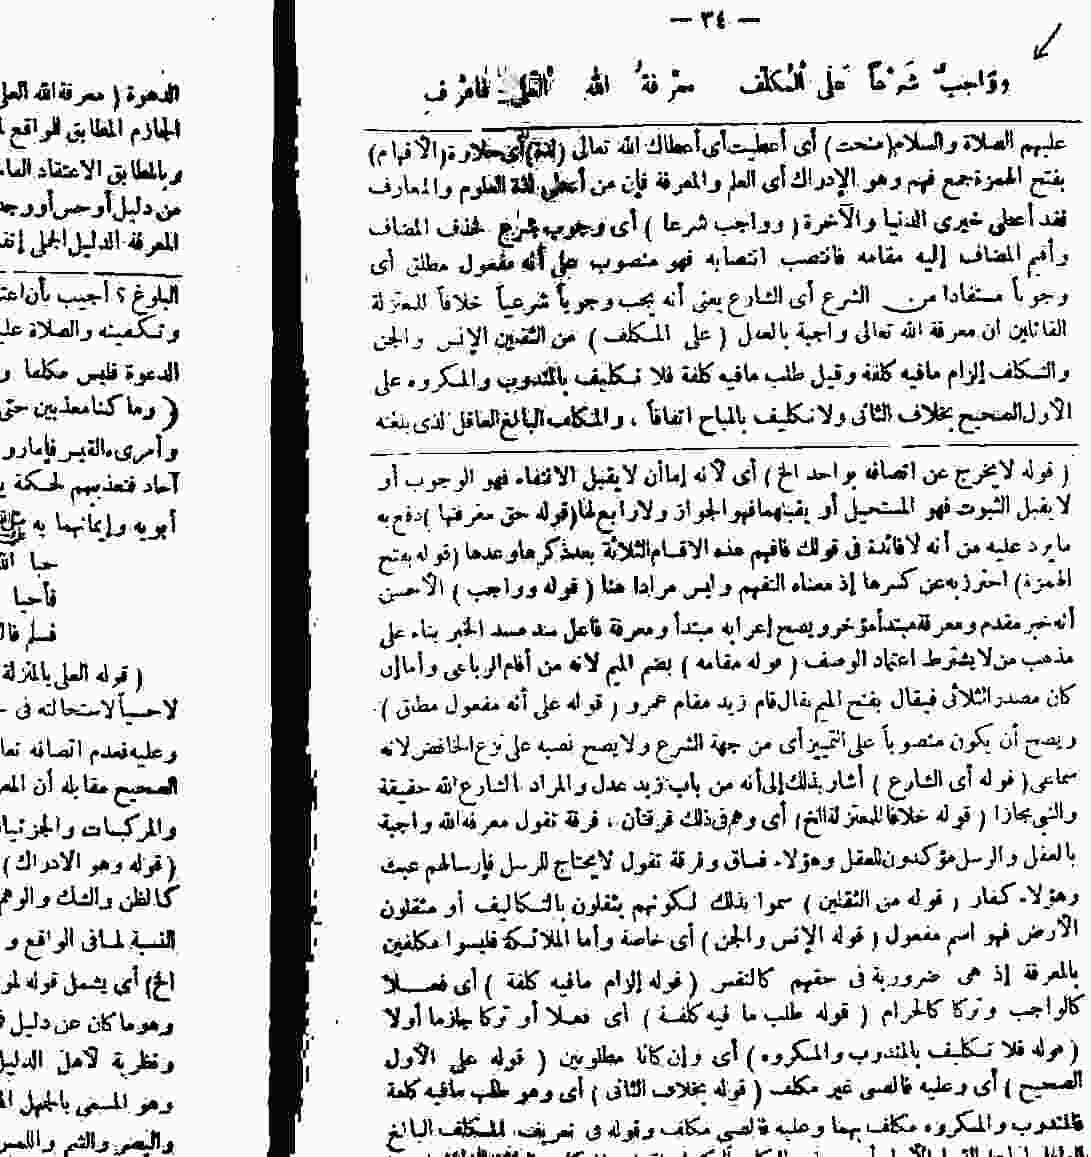 — ٣٤ —
وواجب شرعا على المكلف معرفة الله العلى فاعرف
عليهم الصلاة والسلام (منحت) أى أعطيت أى أعطاك الله تعالى (لذة) أى حلاوة (الأفهام)
بفتح الهمزة جمع فهم وهو الإدراك أى العلم والمعرفة فإن من أعطى لذة العلوم والمعارف
فقد أعطى خيرى الدنيا والآخرة ( وواجب شرعا ) أى وجوب شرع فحذف المضاف
وأقيم المضاف إليه مقامه فانتصب انتصابه فهو منصوب على أنه مفعول مطلق أى
وجوباً مستفادا من الشرع أى الشارع يعنى أنه يجب وجوباً شرعياً خلافاً للمعتزلة
القائلين ان معرفة الله تعالى واجبة بالعدل ( على المكلف ) من الثقلين الإنس والجن
والتكلف إلزام مافيه كلفة وقيل طلب مافيه كلفة فلا تكليف بالمندوب والمكروه على
الأول الصحيح بخلاف الثانى ولا تكليف بالمباح اتفاقاً ، والمكلف البالغ العاقل لذى بلغته
( قوله لا يخرج عن اتصافه بواحد الخ ) أى لأنه إما أن لا يقبل الانتفاء فهو الوجوب أو
لا يقبل الثبوت فهو المستحيل أو يقبلهما فهو الجواز ولا رابع لها (قوله حق معرفتها ) دفع به
ما يرد عليه من أنه لا فائدة فى قولك فافهم هذه الاقسام الثلاثة بعد ذكرها وعدها (قوله بفتح
الهمزة) احترز به عن كسرها إذ معناه التفهم وليس مرادا هنا ( قوله وواجب ) الأحسن
أنه خبر مقدم ومعرفة مبتدأ مؤخر ويصح إعرابه مبتدأ ومعرفة فاعل سد مسد الخبر بناء على
مذهب من لا يشترط اعتماد الوصف ( قوله مقامه ) بضم الميم لأنه من أقام الرباعى وأما إن
كان مصدر الثلاثى فيقال بفتح الميم يقال قام زيد مقام عمرو ( قوله على أنه مفعول مطلق )
ويصح أن يكون منصوباً على التمييز أى من جهة الشرع ولا يصح نصبه على نزع الخافض لانه
سماعى ( قوله أى الشارع ) أشار بذلك إلى أنه من باب زيد عدل والمراد الشارع الله حقيقة
والنبى مجازا ( قوله خلافا للمعتزلة الخ) أى وهم فى ذلك فرقتان ، فرقة تقول معرفه الله واجبة
بالعقل والرسل مؤكدون للعقل وهؤلاء فساق وفرقة تقول لا يحتاج للرسل فإرسالهم عبث
وهؤلاء كفار ( قوله من الثقلين ) سموا بذلك لكونهم يثقلون بالتكاليف أو مثقلون
الأرض فهو اسم مفعول ( قوله الإنس والجن ) أى خاصة وأما الملائكة فليسوا مكلفين
بالمعرفة إذ هى ضرورية فى حقهم كالنفس ( قوله إلزام مافيه كلفة ) أى فعلا
كالواجب وتركا كالحرام ( قوله طلب ما فيه كلفة ) أى فعلا أو تركا جازما أولا
( قوله فلا تكليف بالمندوب والمكروه ) أى وإن كانا مطلوبين ( قوله على الأول
الصحيح ) أى وعليه فالصبى غير مكلف ( قوله بخلاف الثانى ) أى وهو طلب مافيه كلفة
فالمندوب والمكروه مكلف بهما وعليه فالصبى مكلف وقوله فى تعريف المكلف البالغ
الدعوة ( معرفة الله العلى
الجازم المطابق للواقع
وبالمطابق الاعتقاد
من دليل أو حس أو
المعرفة الدليل الجملى
البلوغ ؟ أجيب بأن
وتكفينه والصلاة
الدعوة فليس مكلفا و
( وما كنا معذبين حتى
وأمرىء القيس فإما
آحاد فتعذيبهم لحكمة
أبويه وإيمانهما به
حبا
فأحيا
فسلم
( قوله العلى بالمنزلة
لاحسياً لاستحالته فى
وعليه فعدم اتصافه
الصحيح مقابله أن
والمركبات والجزئيات
( قوله وهو الادراك )
كالظن والشك والوهم
النسبة لما فى الواقع و
الخ) أى يشمل قوله
وهو ما كان عن دليل
ونظرية لأهل الدليل
وهو المسمى بالجهل
والبصر والشم واللمس